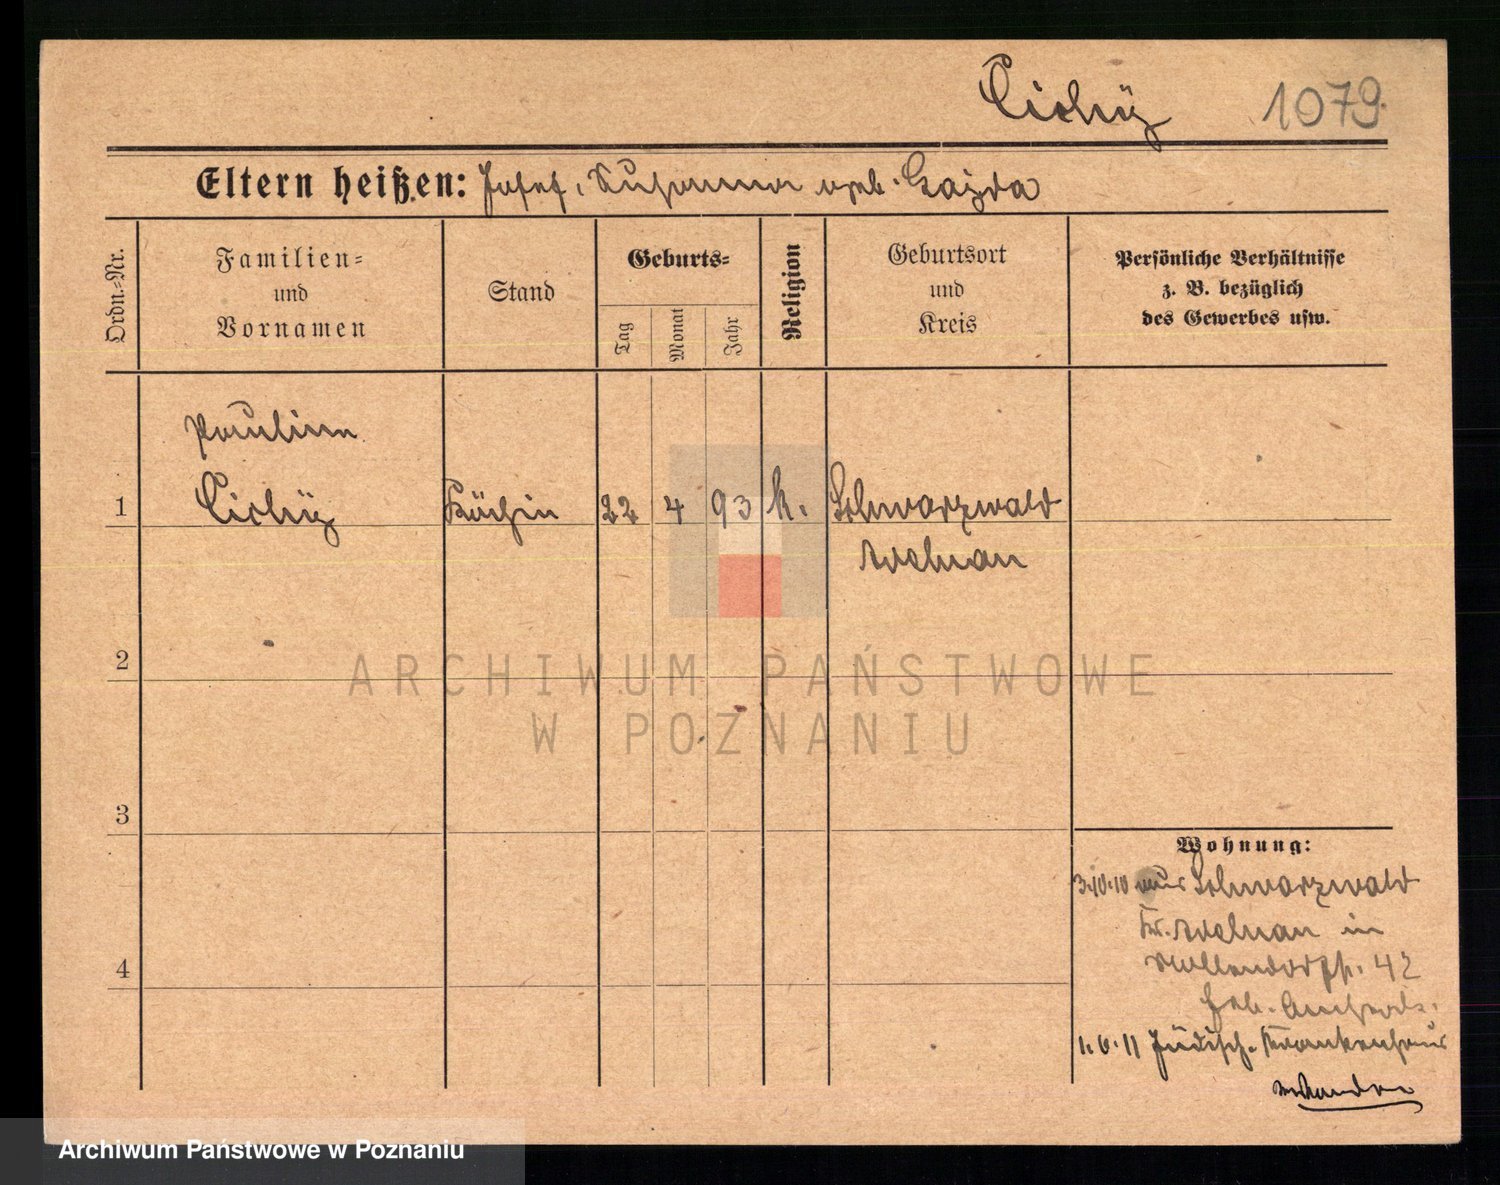 Cichÿ 1079.
Eltern heißen: Josef, Susanna geb. Gajda
Ordn.-Nr.
Familien-
und
Vornamen
Stand
Geburts-
Tag
Monat
Jahr
Religion
Geburtsort
und
Kreis
Persönliche Verhältnisse
z. B. bezüglich
des Gewerbes usw.
Paulina
1 Cichÿ Köchin 22 4 93 k. Schwarzwald
Adelnau
2
3
4
Wohnung:
3.10.10 aus Schwarzwald
Kr. Adelnau in
42
1.6.11 Jüdisch. Krankenhaus
ARCHIWUM PAŃSTWOWE
W POZNANIU
Archiwum Państwowe w Poznaniu